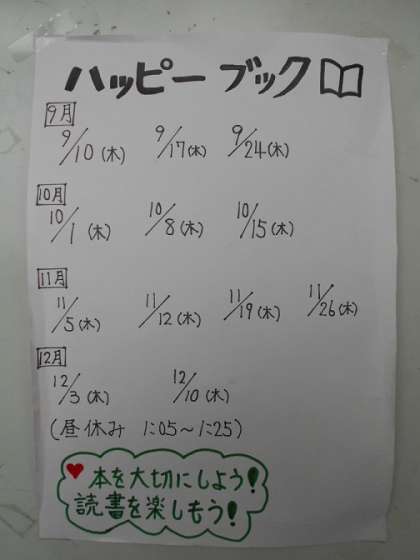 ハッピーブック
9月
9/10(木) 9/17(木) 9/24(木)
10月
10/1(木) 10/8(木) 10/15(木)
11月
11/5(木) 11/12(木) 11/19(木) 11/26(木)
12月
12/3(木) 12/10(木)
(昼休み 1:05~1:25)
♥本を大切にしよう!
読書を楽しもう!